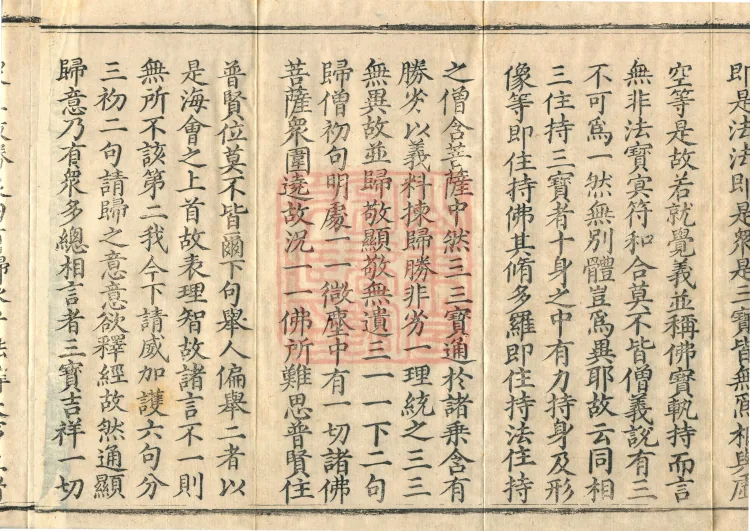 即是法法即是眾是三寶皆無爲相與虛
空等是故若就覺義並稱佛寶軌持而言
無非法寶冥符和合莫不皆僧義說有三
不可爲一然無別體豈爲異耶故云同相
三住持三寶者十身之中有力持身及形
像等即住持佛其脩多羅即住持法住持
之僧含菩薩中然三三寶通於諸乗含有
勝劣以義料揀歸勝非劣一理統之三三
無異故並歸敬顯敬無遺三一一下二句
歸僧初句明處一一微塵中有一切諸佛
菩薩衆圍遶故況一一佛所難思普賢住
普賢位莫不皆爾下句舉人偏舉二者以
是海會之上首故表理智故諸言不一則
無所不該第二我今下請威加護六句分
三初二句請歸之意意欲釋經故然通顯
歸意乃有衆多緫相言者三寶吉祥一切